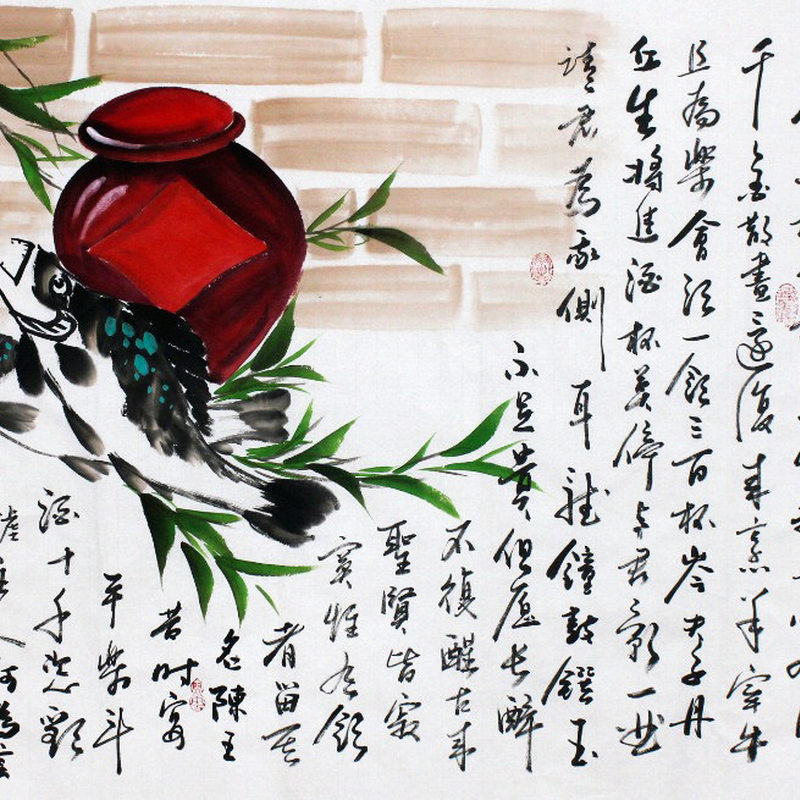 千金散盡還復來烹羊宰牛
且為樂會須一飲三百杯岑夫子丹
丘生將進酒杯莫停與君歌一曲
請君為我側耳聽鐘鼓饌玉
不足貴但愿長醉
不復醒古來
聖賢皆寂
寞惟有飲
者留其
名陳王
昔時宴
平樂斗
酒十千恣歡
謔主人何為言